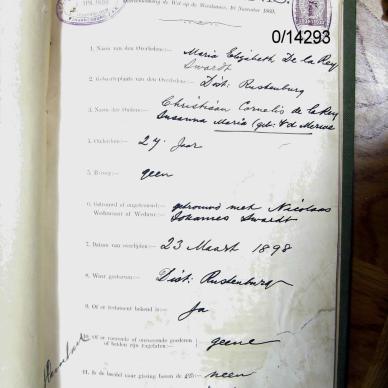 0/14293
1. Naam van den Overledene:— Maria Elizabeth De la Rey
Swardt
2. Geboorteplaats van den Overledene:— Dist: Rustenburg
3. Namen der Ouders:— Christiaan Cornelis de la Rey
Susanna Maria (geb: v d Merwe
4. Ouderdom:— 27 Jaar
5. Beroep:— geen
6. Getrouwd of ongetrouwd:— getrouwd met Nicolaas
Weduwnaar of Weduwe:— Johannes Swardt
7. Datum van overlijden:— 23 Maart 1898
8. Waar gestorven:— Dist: Rustenburg
9. Of er testament bekend is:— Ja
10. Of er roerende of onroerende goederen
of beiden zijn nagelaten:— geene
11. Is de boedel naar gissing boven de neen